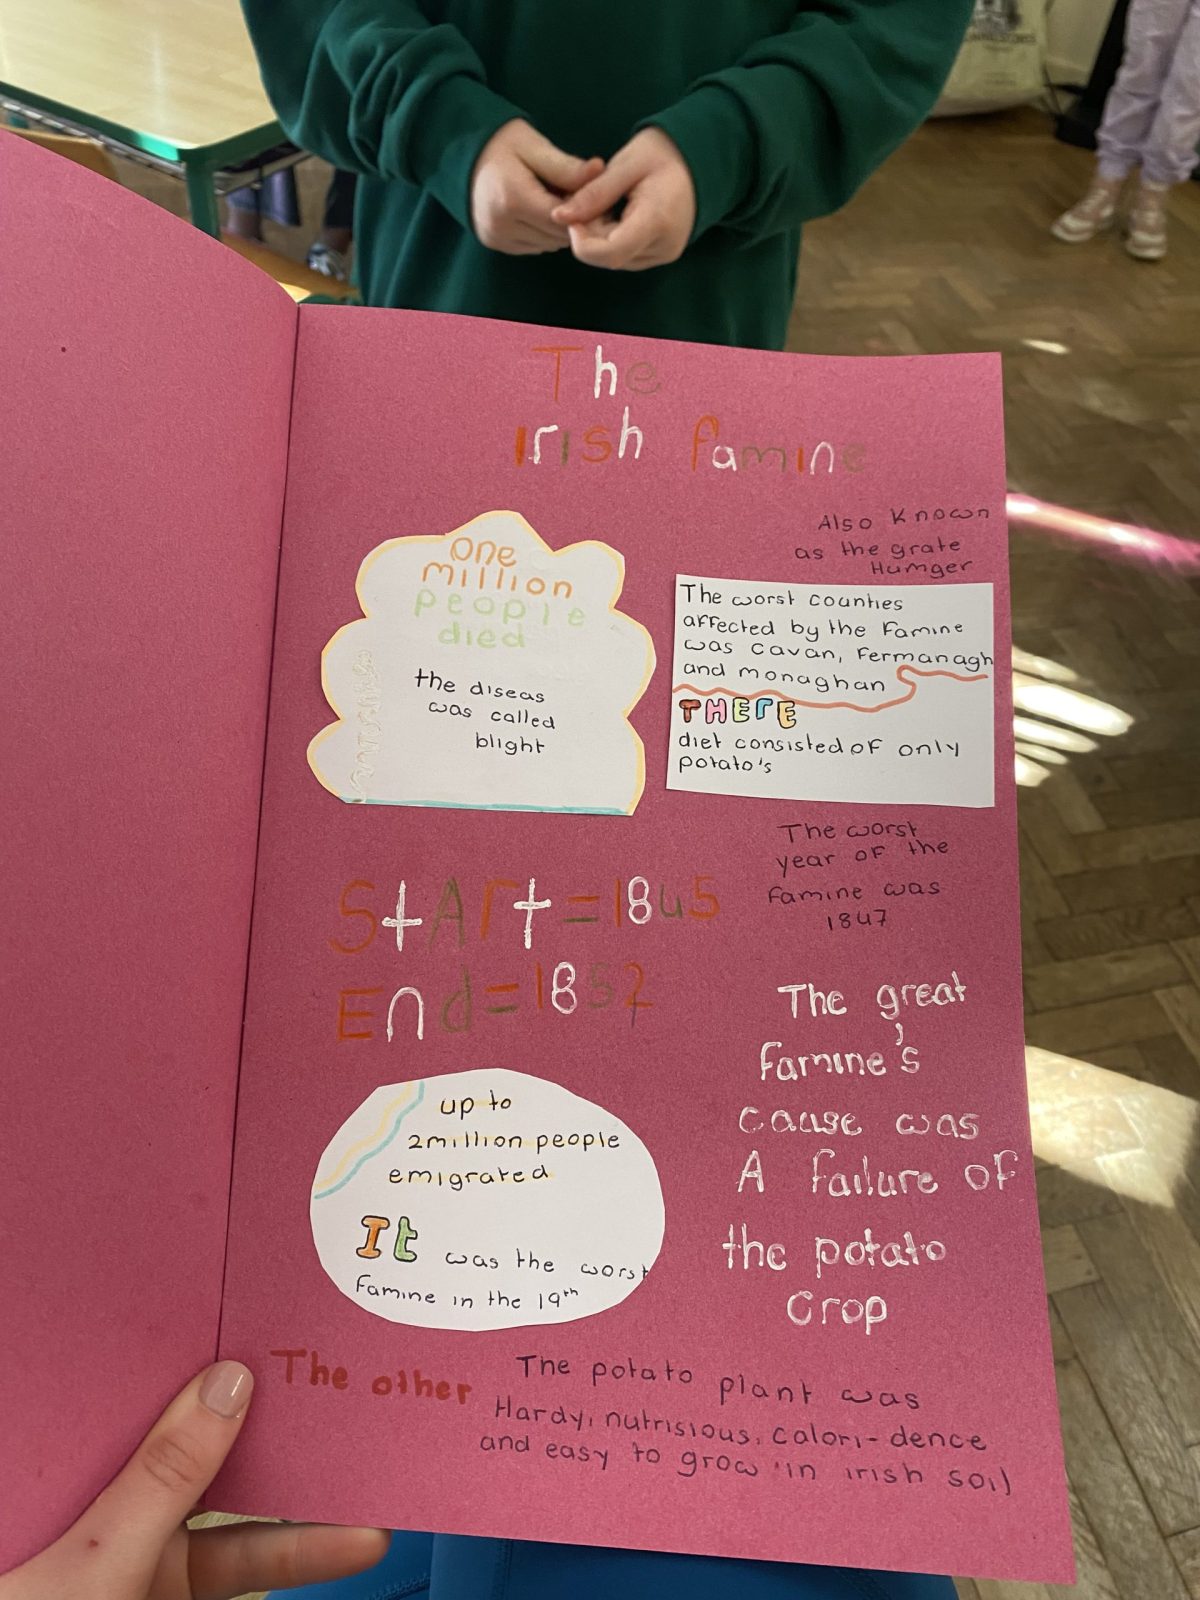 The
Irish famine
Also Known
as the grate
Humger
one
million
people
died
the diseas
was called
blight
The worst counties
affected by the famine
was cavan, fermanagh
and monaghan
THERE
diet consisted of only
potato's
The worst
year of the
famine was
1847
StArt = 1845
End = 1852
The great
famine's
cause was
A failure of
the potato
crop
up to
2million people
emigrated
It was the worst
famine in the 19th
The other
The potato plant was
Hardy, nutrisious, calori-dence
and easy to grow in irish soil